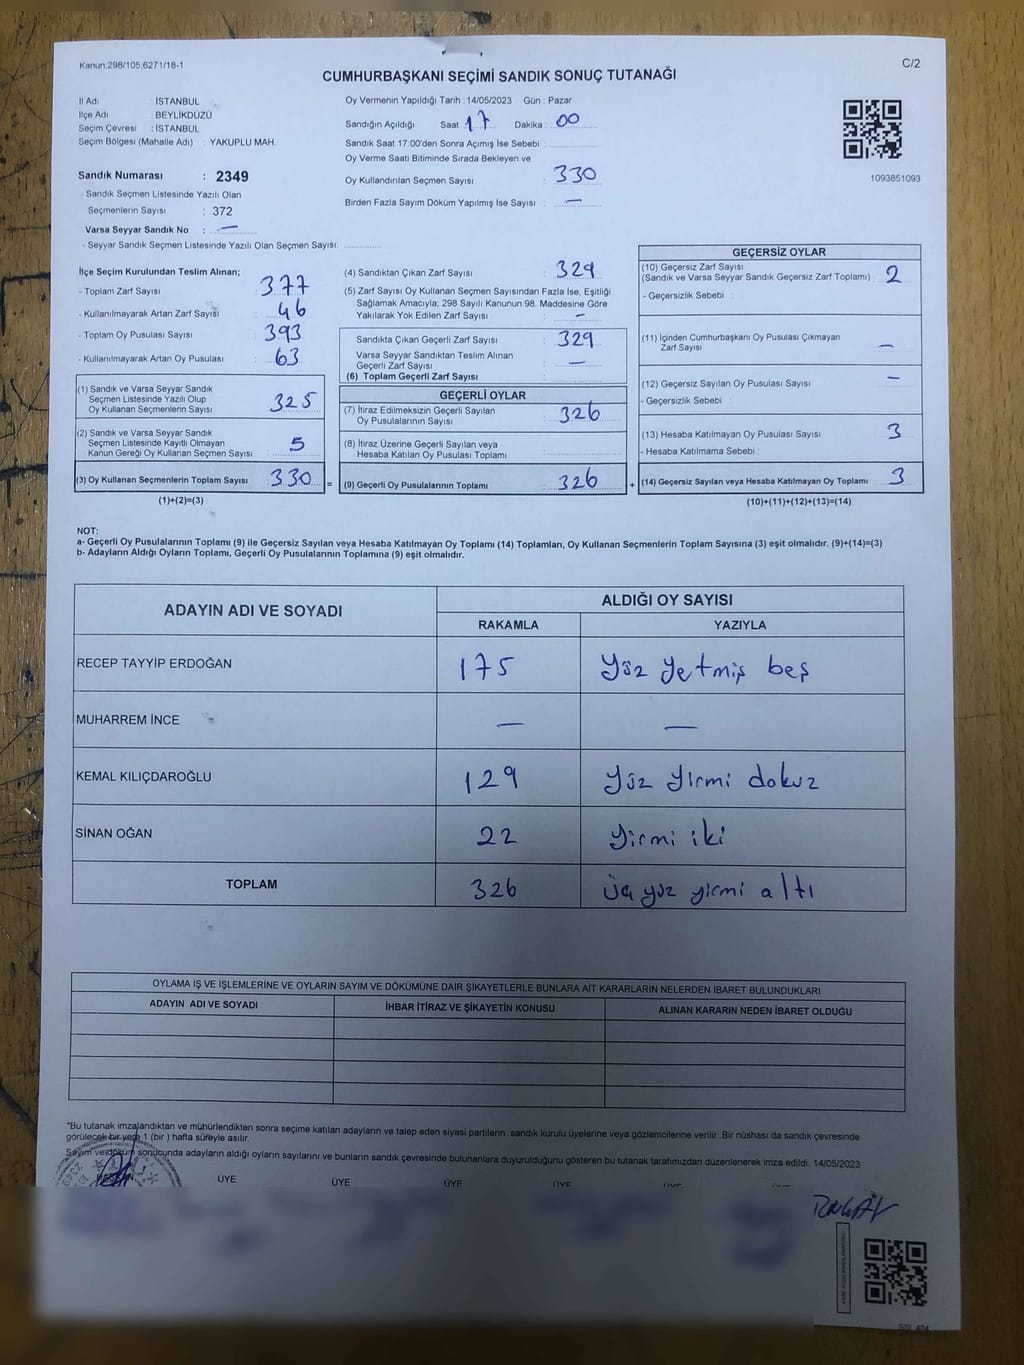 Kanun.298/105,6271/18-1
C/2
CUMHURBAŞKANI SEÇİMİ SANDIK SONUÇ TUTANAĞI
İl Adı : İSTANBUL
İlçe Adı : BEYLİKDÜZÜ
Seçim Çevresi : İSTANBUL
Seçim Bölgesi (Mahalle Adı) : YAKUPLU MAH.
Sandık Numarası : 2349
- Sandık Seçmen Listesinde Yazılı Olan
Seçmenlerin Sayısı : 372
Varsa Seyyar Sandık No : —
- Seyyar Sandık Seçmen Listesinde Yazılı Olan Seçmen Sayısı:
Oy Vermenin Yapıldığı Tarih : 14/05/2023 Gün : Pazar
Sandığın Açıldığı Saat : 17 Dakika : 00
Sandık Saat 17:00'den Sonra Açımış İse Sebebi :
Oy Verme Saati Bitiminde Sırada Bekleyen ve
Oy Kullandırılan Seçmen Sayısı : 330
Birden Fazla Sayım Döküm Yapılmış İse Sayısı : —
1093851093
İlçe Seçim Kurulundan Teslim Alınan;
- Toplam Zarf Sayısı : 377
- Kullanılmayarak Artan Zarf Sayısı : 46
- Toplam Oy Pusulası Sayısı : 393
- Kullanılmayarak Artan Oy Pusulası : 63
(1) Sandık ve Varsa Seyyar Sandık
Seçmen Listesinde Yazılı Olup
Oy Kullanan Seçmenlerin Sayısı : 325
(2) Sandık ve Varsa Seyyar Sandık
Seçmen Listesinde Kayıtlı Olmayan
Kanun Gereği Oy Kullanan Seçmen Sayısı : 5
(3) Oy Kullanan Seçmenlerin Toplam Sayısı : 330
(1)+(2)=(3)
=
(4) Sandıktan Çıkan Zarf Sayısı : 329
(5) Zarf Sayısı Oy Kullanan Seçmen Sayısından Fazla İse, Eşitliği
Sağlamak Amacıyla; 298 Sayılı Kanunun 98. Maddesine Göre
Yakılarak Yok Edilen Zarf Sayısı : —
Sandıkta Çıkan Geçerli Zarf Sayısı : 329
Varsa Seyyar Sandıktan Teslim Alınan
Geçerli Zarf Sayısı : —
(6) Toplam Geçerli Zarf Sayısı :
GEÇERLİ OYLAR
(7) İtiraz Edilmeksizin Geçerli Sayılan
Oy Pusulalarının Sayısı : 326
(8) İtiraz Üzerine Geçerli Sayılan veya
Hesaba Katılan Oy Pusulası Toplamı :
(9) Geçerli Oy Pusulalarının Toplamı : 326
+
GEÇERSİZ OYLAR
(10) Geçersiz Zarf Sayısı
(Sandık ve Varsa Seyyar Sandık Geçersiz Zarf Toplamı) : 2
- Geçersizlik Sebebi :
(11) İçinden Cumhurbaşkanı Oy Pusulası Çıkmayan
Zarf Sayısı : —
(12) Geçersiz Sayılan Oy Pusulası Sayısı : —
- Geçersizlik Sebebi :
(13) Hesaba Katılmayan Oy Pusulası Sayısı : 3
- Hesaba Katılmama Sebebi :
(14) Geçersiz Sayılan veya Hesaba Katılmayan Oy Toplamı : 3
(10)+(11)+(12)+(13)=(14)
NOT:
a- Geçerli Oy Pusulalarının Toplamı (9) ile Geçersiz Sayılan veya Hesaba Katılmayan Oy Toplamı (14) Toplamları, Oy Kullanan Seçmenlerin Toplam Sayısına (3) eşit olmalıdır. (9)+(14)=(3)
b- Adayların Aldığı Oyların Toplamı, Geçerli Oy Pusulalarının Toplamına (9) eşit olmalıdır.
ADAYIN ADI VE SOYADI
ALDIĞI OY SAYISI
RAKAMLA YAZIYLA
RECEP TAYYİP ERDOĞAN 175 Yüz Yetmiş beş
MUHARREM İNCE — —
KEMAL KILIÇDAROĞLU 129 Yüz Yirmi dokuz
SİNAN OĞAN 22 Yirmi iki
TOPLAM 326 Üç yüz yirmi altı
OYLAMA İŞ VE İŞLEMLERİNE VE OYLARIN SAYIM VE DÖKÜMÜNE DAİR ŞİKAYETLERLE BUNLARA AİT KARARLARIN NELERDEN İBARET BULUNDUKLARI
ADAYIN ADI VE SOYADI İHBAR İTİRAZ VE ŞİKAYETİN KONUSU ALINAN KARARIN NEDEN İBARET OLDUĞU
*Bu tutanak imzalandıktan ve mühürlendikten sonra seçime katılan adayların ve talep eden siyasi partilerin sandık kurulu üyelerine veya gözlemcilerine verilir. Bir nüshası da sandık çevresinde
görülecek bir yere 1 (bir ) hafta süreyle asılır.
Sayım ve döküm sonucunda adayların aldığı oyların sayılarını ve bunların sandık çevresinde bulunanlara duyurulduğunu gösteren bu tutanak tarafımızdan düzenlenerek imza edildi. 14/05/2023
BAŞKAN ÜYE ÜYE ÜYE ÜYE